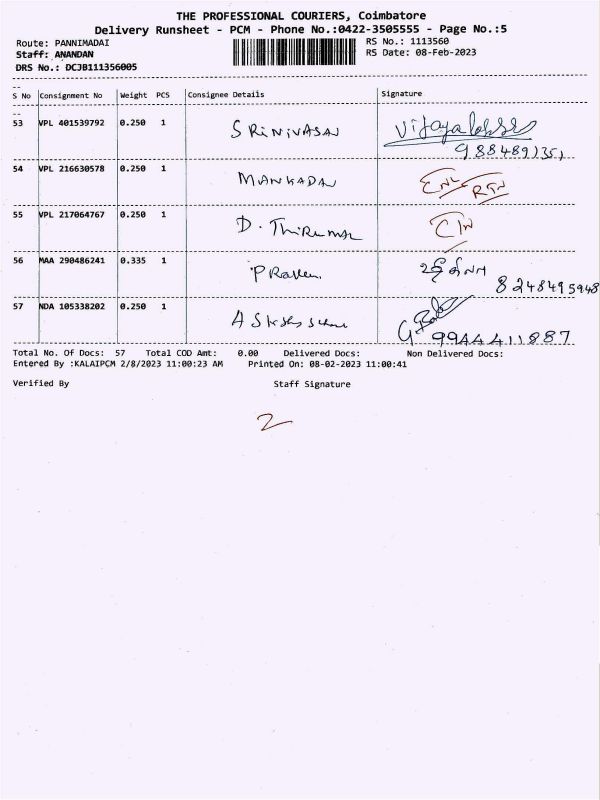 THE PROFESSIONAL COURIERS, Coimbatore
Delivery Runsheet - PCM - Phone No.:0422-3505555 - Page No.:5
Route: PANNIMADAI
RS No.: 1113560
Staff: ANANDAN
RS Date: 08-Feb-2023
DRS No.: DCJB111356005
S No Consignment No Weight PCS Consignee Details Signature
53 VPL 401539792 0.250 1 SRINIVASAN
54 VPL 216630578 0.250 1 MANKADAN
55 VPL 217064767 0.250 1 D. Thirumal
56 MAA 290486241 0.335 1 PRaveen
8248495948
57 NDA 105338202 0.250 1
9944411887
Total No. Of Docs: 57 Total COD Amt: 0.00 Delivered Docs: Non Delivered Docs:
Entered By :KALAIPCM 2/8/2023 11:00:23 AM Printed On: 08-02-2023 11:00:41
Verified By Staff Signature
2